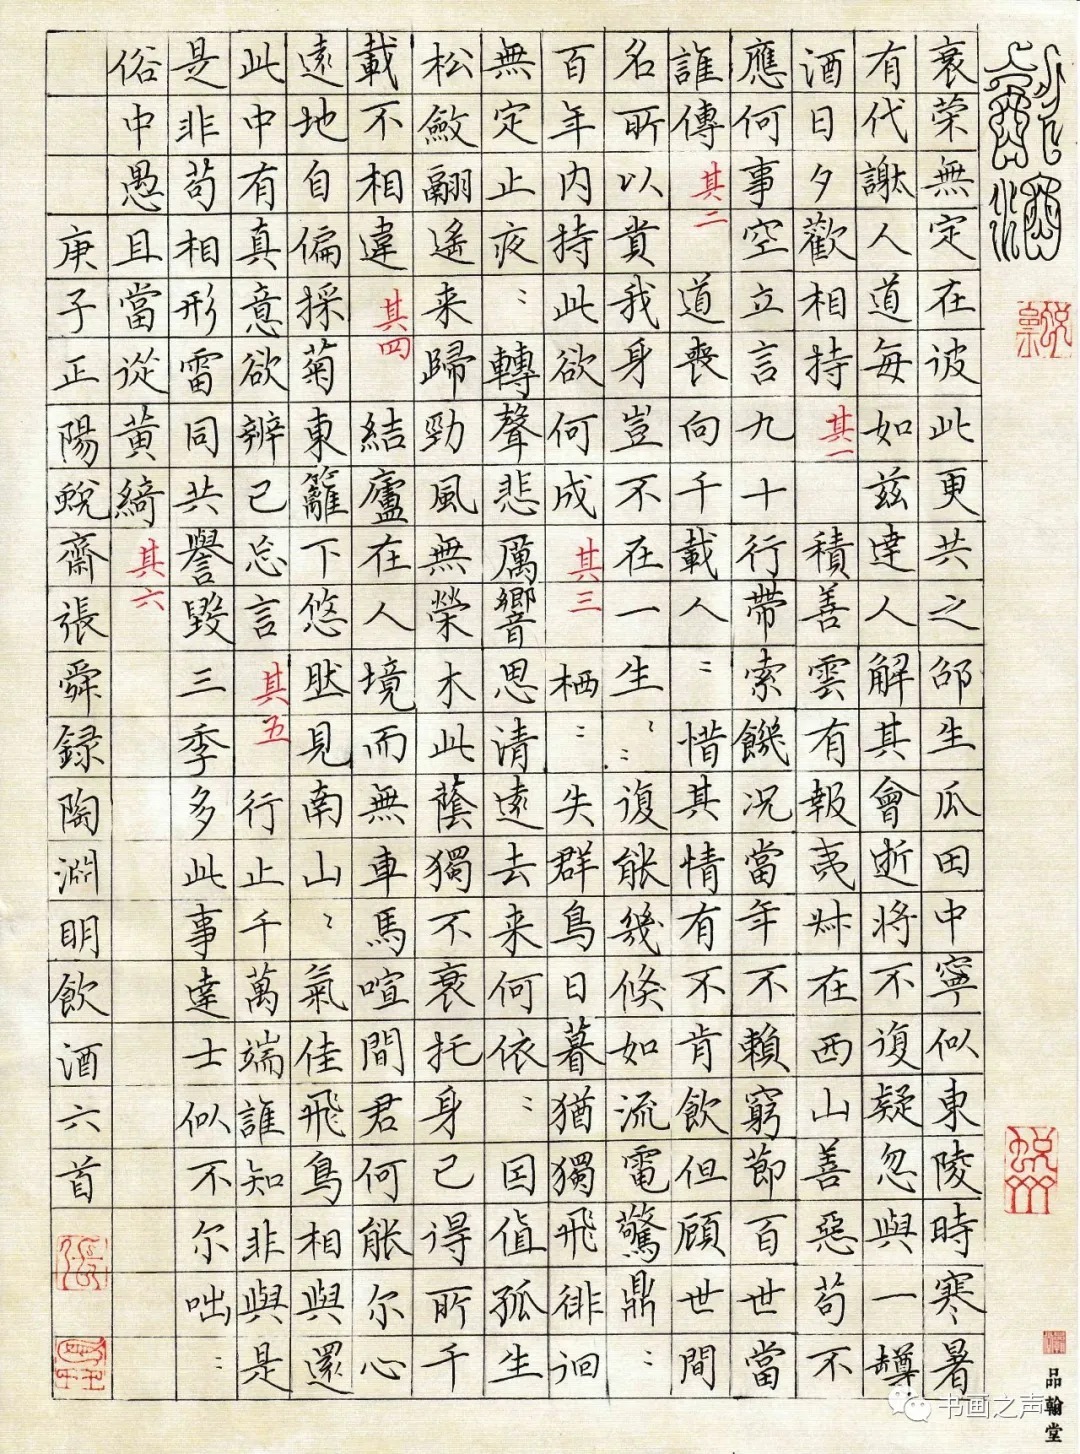 衰荣無定在彼此更共之邵生瓜田中寧似東陵時寒暑
有代謝人道每如兹達人解其會逝将不復疑忽與一樽
酒日夕歡相持其一積善雲有報夷叔在西山善惡苟不
應何事空立言九十行帶索饑况當年不賴窮節百世當
誰傳其二道喪向千載人〻惜其情有不肯飲但顧世間
名所以貴我身豈不在一生〻〻復能幾倏如流電驚鼎〻
百年内持此欲何成其三栖〻失群鳥日暮猶獨飛徘徊
無定止夜〻轉聲悲厲響思清遠去来何依〻因值孤生
松斂翮遥来歸勁風無榮木此蔭獨不衰托身已得所千
載不相違其四結廬在人境而無車馬喧問君何能尔心
遠地自偏採菊東籬下悠然見南山〻氣佳飛鳥相與還
此中有真意欲辨已忘言其五行止千萬端誰知非與是
是非苟相形雷同共譽毀三季多此事達士似不尔咄〻
俗中愚且當從黃綺其六
庚子正陽蜕齋張舜録陶淵明飲酒六首
品翰堂
书画之声